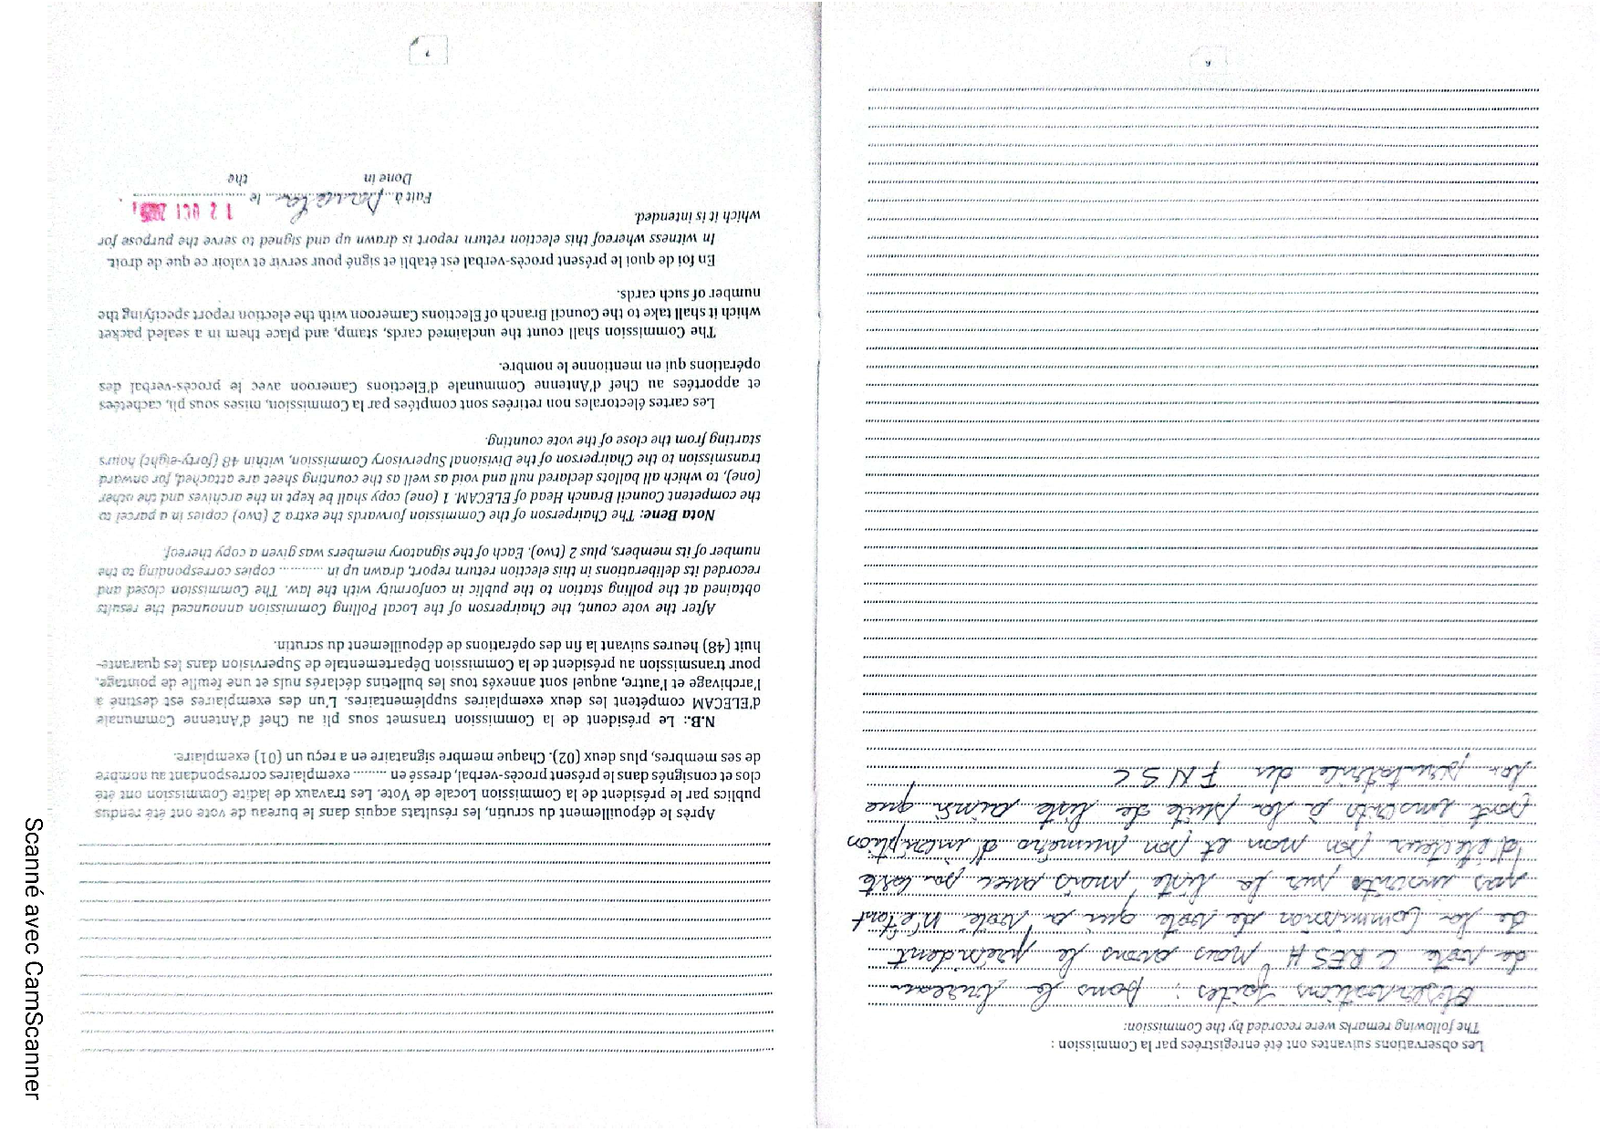 Les observations suivantes ont été enregistrées par la Commission :
The following remarks were recorded by the Commission:
Observations faites : Dans le bureau
de vote CRESH nous avons le président
de la Commission de vote qui a voté N'étant
pas inscrits sur la liste mais avec sa carte
d'électeur son nom et son numéro d'inscription
sont inscrits à la suite de liste ainsi que
la du FNSC
6
Après le dépouillement du scrutin, les résultats acquis dans le bureau de vote ont été rendus
publics par le président de la Commission Locale de Vote. Les travaux de ladite Commission ont été
clos et consignés dans le présent procès-verbal, dressé en ......... exemplaires correspondant au nombre
de ses membres, plus deux (02). Chaque membre signataire en a reçu un (01) exemplaire.
N.B.: Le président de la Commission transmet sous pli au Chef d'Antenne Communale
d'ELECAM compétent les deux exemplaires supplémentaires. L'un des exemplaires est destiné à
l'archivage et l'autre, auquel sont annexés tous les bulletins déclarés nuls et une feuille de pointage,
pour transmission au président de la Commission Départementale de Supervision dans les quarante-
huit (48) heures suivant la fin des opérations de dépouillement du scrutin.
After the vote count, the Chairperson of the Local Polling Commission announced the results
obtained at the polling station to the public in conformity with the law. The Commission closed and
recorded its deliberations in this election return report, drawn up in ............ copies corresponding to the
number of its members, plus 2 (two). Each of the signatory members was given a copy thereof.
Nota Bene: The Chairperson of the Commission forwards the extra 2 (two) copies in a parcel to
the competent Council Branch Head of ELECAM. 1 (one) copy shall be kept in the archives and the other
(one), to which all ballots declared null and void as well as the counting sheet are attached, for onward
transmission to the Chairperson of the Divisional Supervisory Commission, within 48 (forty-eight) hours
starting from the close of the vote counting.
Les cartes électorales non retirées sont comptées par la Commission, mises sous pli, cachetées
et apportées au Chef d'Antenne Communale d'Elections Cameroon avec le procès-verbal des
opérations qui en mentionne le nombre.
The Commission shall count the unclaimed cards, stamp, and place them in a sealed packet
which it shall take to the Council Branch of Elections Cameroon with the election report specifying the
number of such cards.
En foi de quoi le présent procès-verbal est établi et signé pour servir et valoir ce que de droit.
In witness whereof this election return report is drawn up and signed to serve the purpose for
which it is intended.
Fait à le 12 OCT
Done in the
7
Scanné avec CamScanner